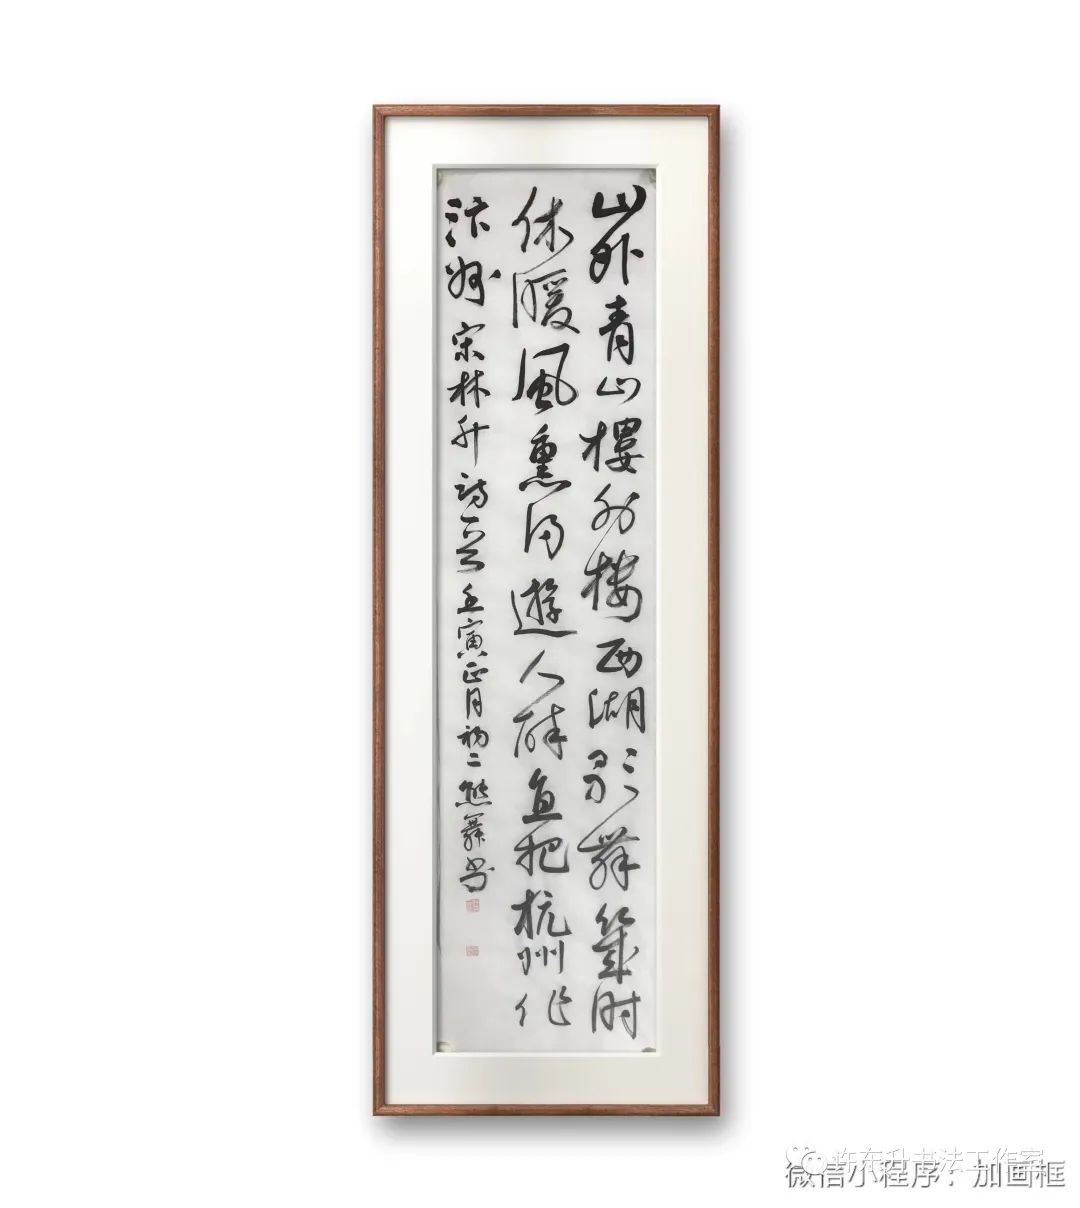 山外青山樓外樓西湖歌舞幾时
休暖風熏得遊人醉直把杭州作
汴州 宋林升詩一首 壬寅正月初二熊舞书
许东升书法工作室
微信小程序：加画框